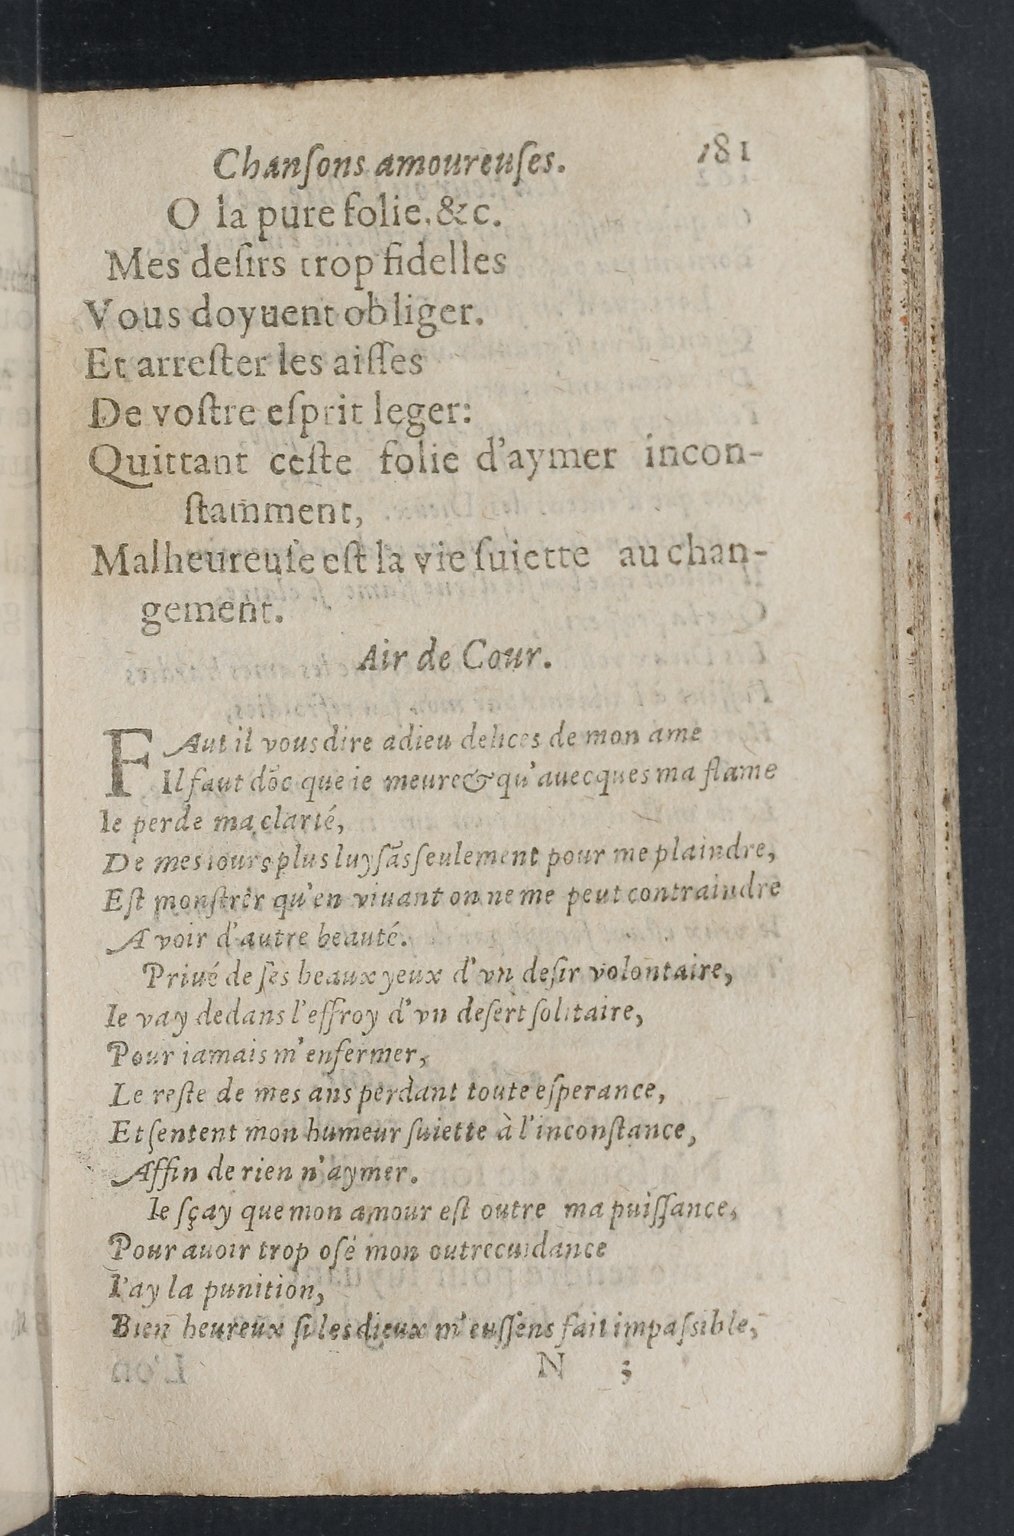 Chanſons amoureuſes. 181
O la pure folie, &c.
Mes deſirs trop fidelles
Vous doyuent obliger.
Et arreſter les aiſſes
De voſtre eſprit leger:
Quittant ceſte folie d'aymer incon-
ſtamment,
Malheureuſe eſt la vie ſuiette au chan-
gement.
Air de Cour.
FAut il vous dire adieu delices de mon ame
Il faut dōc que ie meure & qu'auecques ma flame
Ie perde ma clarté,
De mes iours plus luyſās ſeulement pour me plaindre,
Eſt monſtrer qu'en viuant on ne me peut contraindre
A voir d'autre beauté.
Priué de ſes beaux yeux d'vn deſir volontaire,
Ie vay dedans l'effroy d'vn deſert ſolitaire,
Pour iamais m'enfermer,
Le reſte de mes ans perdant toute eſperance,
Et ſentent mon humeur ſuiette à l'inconſtance,
Affin de rien n'aymer.
Ie ſçay que mon amour eſt outre ma puiſſance,
Pour auoir trop oſé mon outrecuidance
I'ay la punition,
Bien heureux ſi les dieux m'euſſens fait impaſsible,
N 3